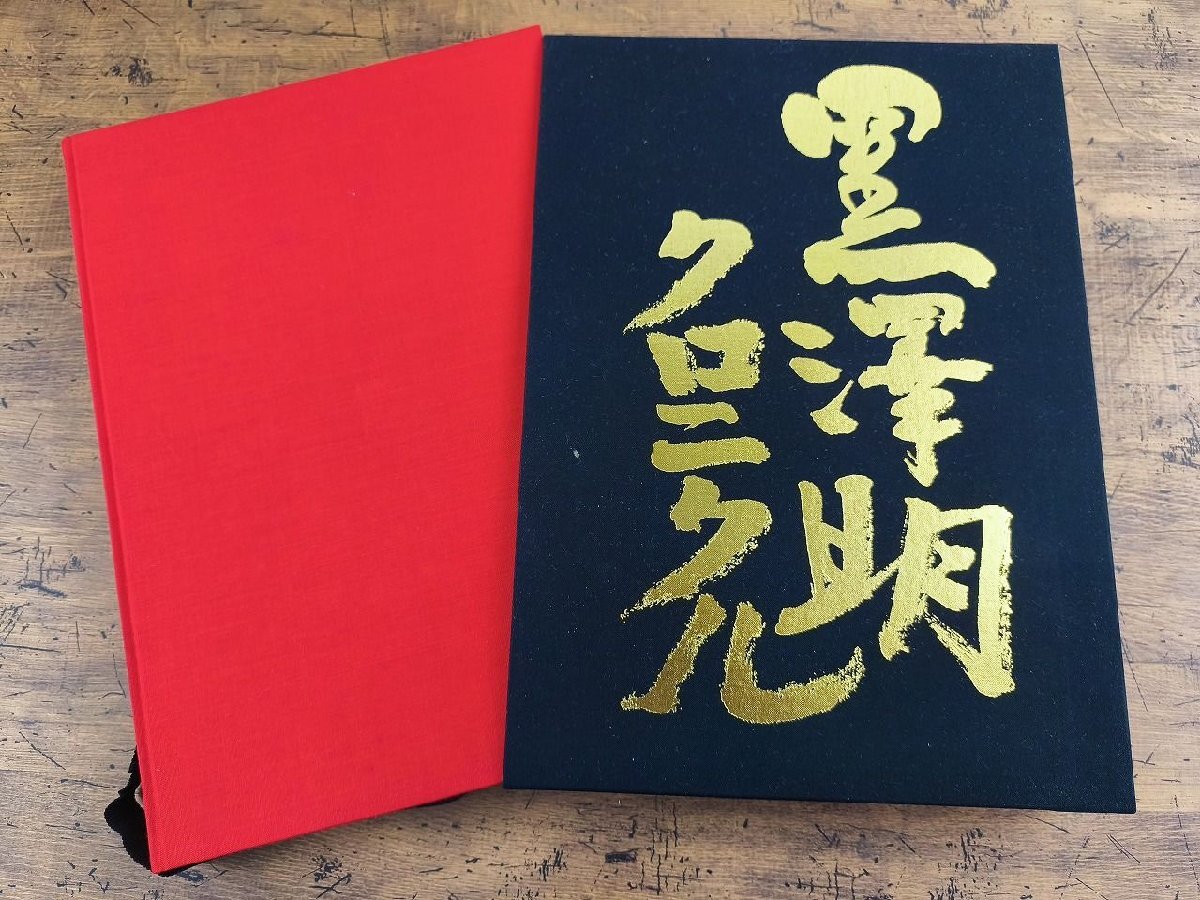 黒澤明
クロニクル